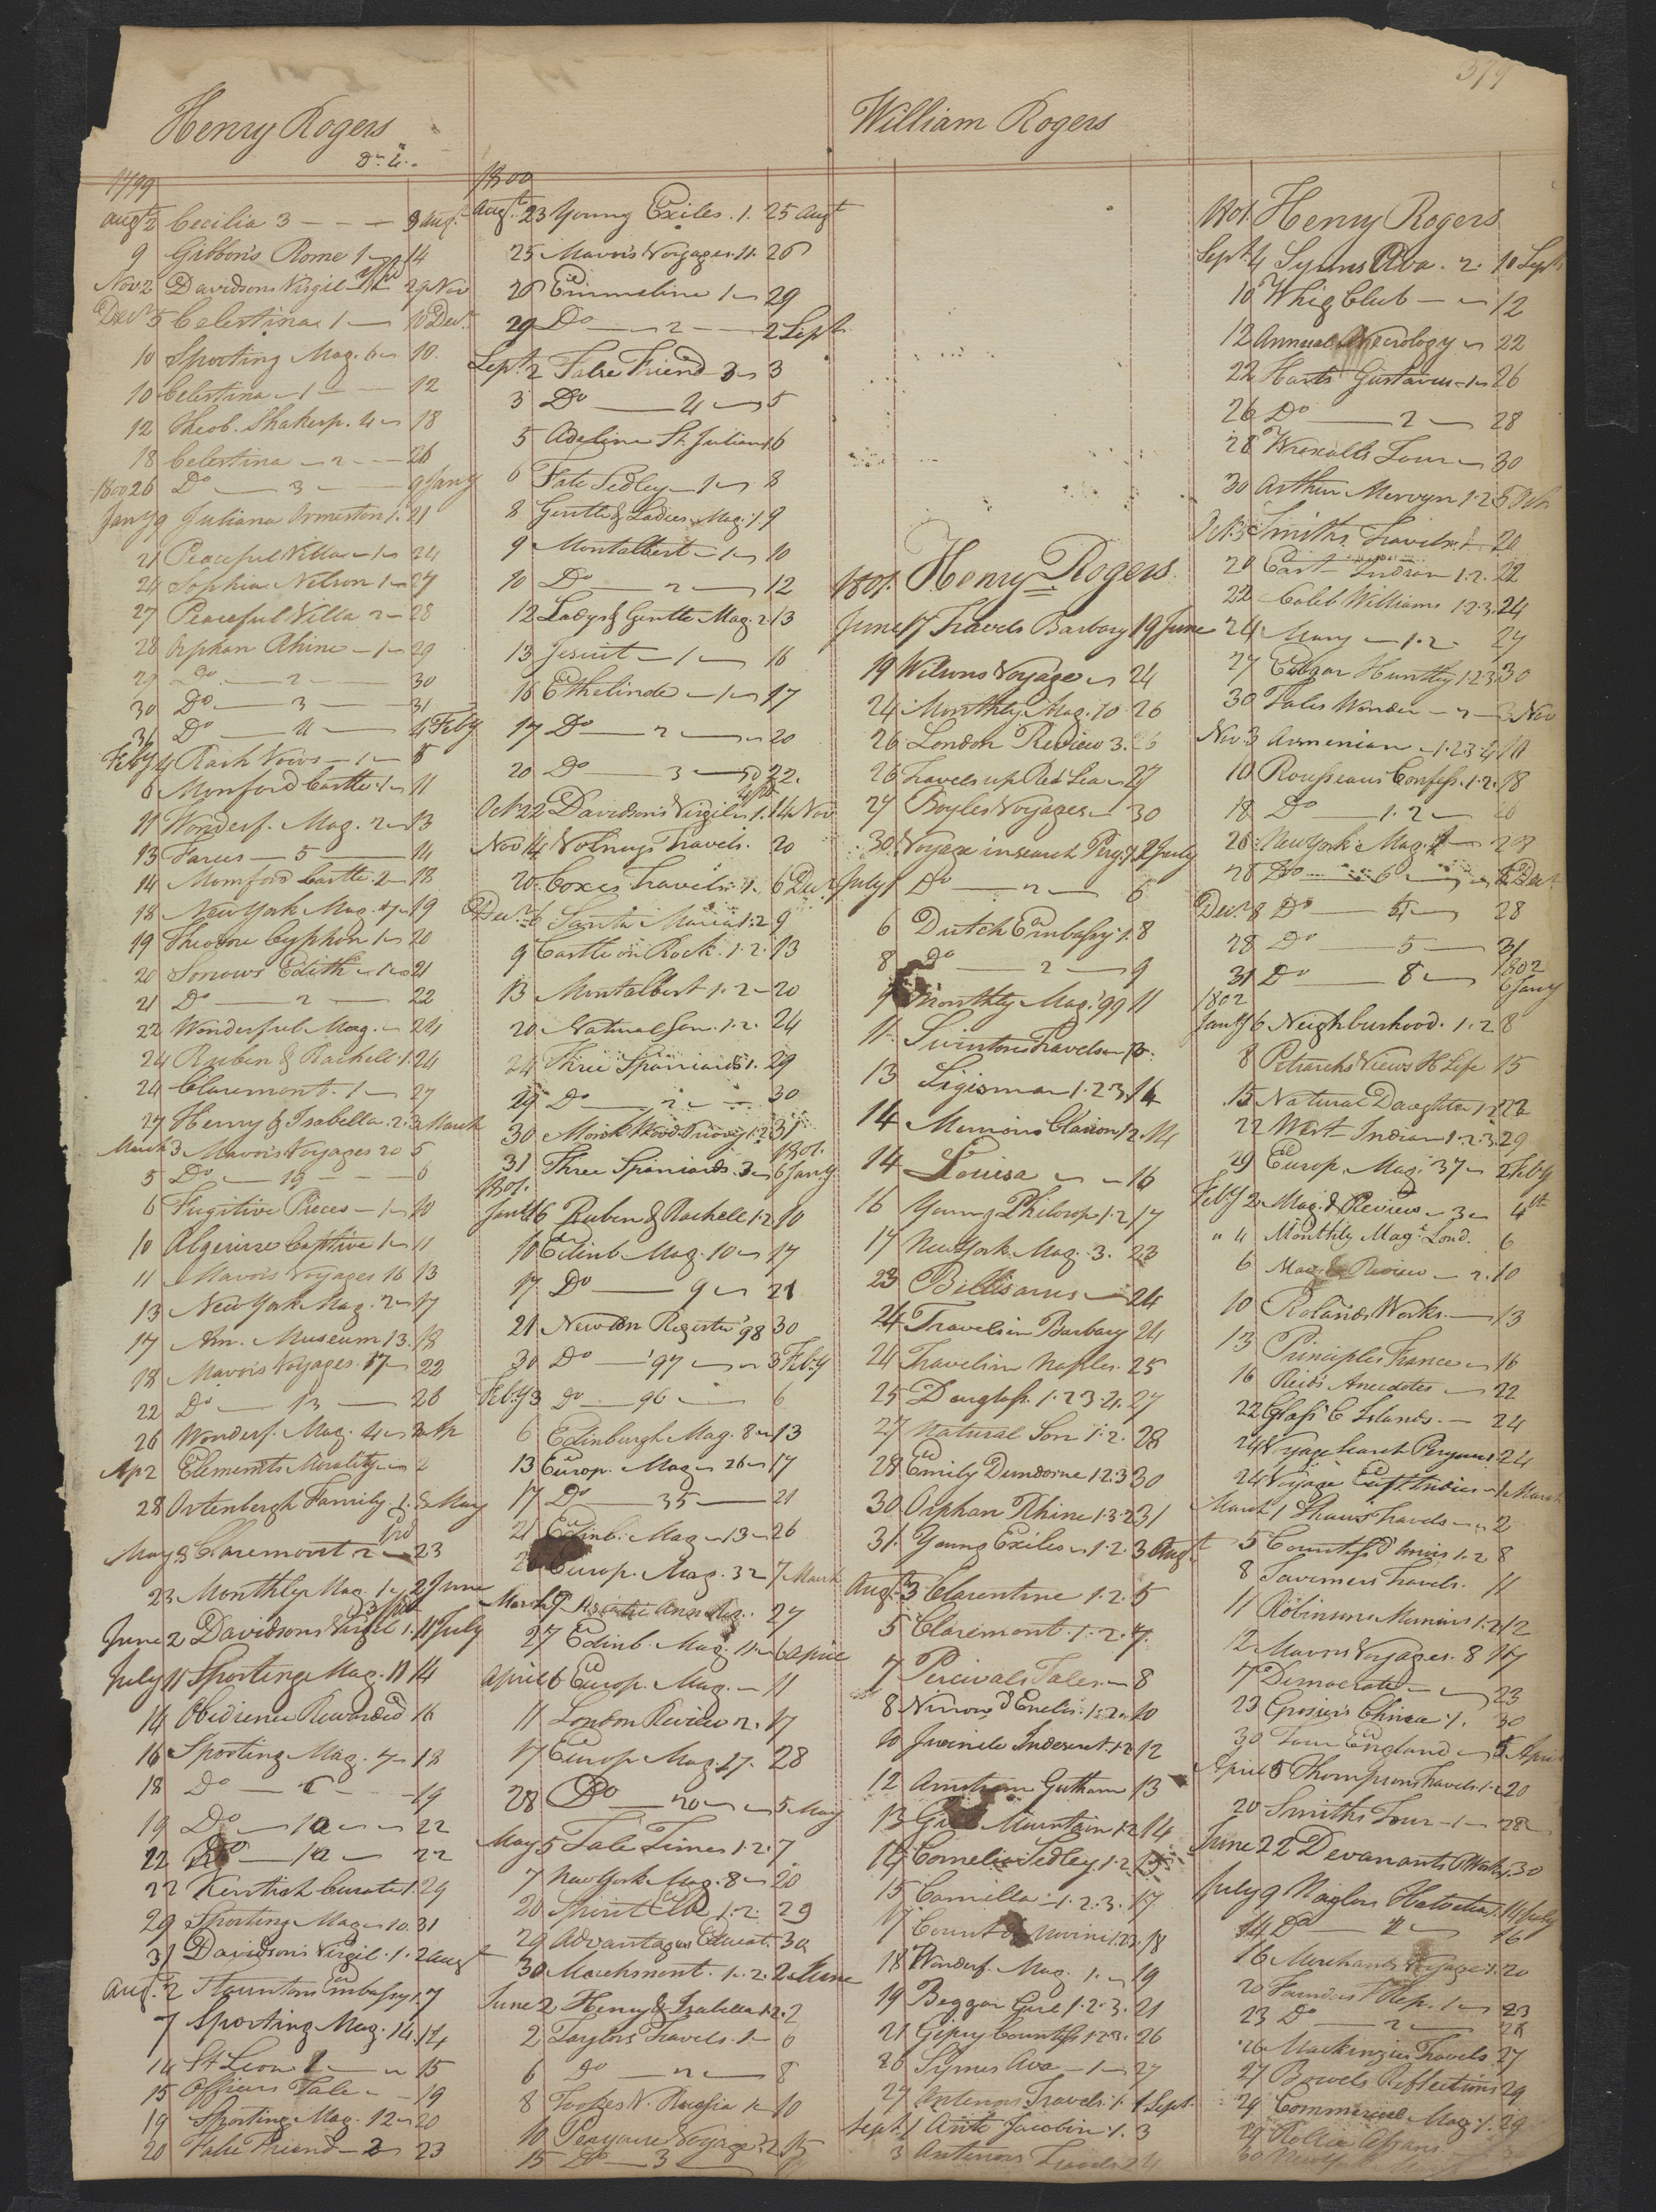 579
Henry Rogers
Dr. &c.
1799
Augt 2 Cecilia 3 — — — 9 Augt
9 Gibbon's Rome 1 — 14
Nov 2 Davidsons Virgil — 29 Nov
Decr 5 Celestina 1 — 10 Decr
10 Sporting Mag. 6 — 10.
10 Celestina — 1 — 12
12 Theob. Shakesp. 4 — 18
18 Celestina — 2 — — 26
1800 26 Do — 3 — 9 Jany
Jany 9 Juliana Ormeston 1. 21
21 Peaceful Villa — 1 — 24
24 Sophia Nelson 1 — 27
27 Peaceful Villa 2 — 28
28 Orphan Rhine — 1 — 29
29 Do — 2 — 30
30 Do — 3 — 31
31 Do — 4 — 4 Feby
Feby 4 Rash Vows — 1 — 6
6 Monford Castle 1 — 11
11 Wonderf. Mag. 2 — 13
13 Farces — 5 — 14
14 Momford Castle 2 — 18
18 New York Mag. 7 — 19
19 Theodore Cyphon 1 — 20
20 Sorrows Edith — 1 — 21
21 Do — 2 — 22
22 Wonderful Mag. — 24
24 Ruben & Rachell. 1. 24
24 Claremont. 1 — 27
27 Henry & Isabella. 2. 3 March
March 3 Mavors Voyages 20 5
5 Do — 19 — — — 6
6 Fugitive Pieces — 1 — 10
10 Algerine Captive 1 — 11
11 Mavors Voyages 16 13
13 New York Mag. 2 — 17
17 Am. Museum 13. 18
18 Mavors Voyages. 17 — 22
22 Do — 13 — 26
26 Wonderf. Mag. 4 — 2 Ap
Ap 2 Elements Morality — 2
28 Ortenbergh Family. 1. 8 May
May 8 Claremont 2 — 23
23 Monthly Mag. 1 — 2 June
June 2 Davidsons Virgil 1. 11 July
July 11 Sporting Mag. 11 14
14 Obedience Rewarded 16
16 Sporting Mag. 7 — 18
18 Do — 6 — — 19
19 Do — 10 — 22
22 Do — 12 — 22
22 Kentish Curate 1. 29
29 Sporting Mag — 10. 31
31 Davidsons Virgil. 1. 2 Augt
Augt. 2 Staunton's Embassy 1. 7
7 Sporting Mag. 14. 14
14 St Leon 1 — 15
15 Officers Tale — — 19
19 Sporting Mag. 12 — 20
20 False Friend — 2 — 23
1800
Augt. 23 Young Exiles. 1. 25 Augt
25 Mavors Voyages. 11. 26
26 Emmeline 1 — 29
29 Do — 2 — 2 Sept
Sept. 2 False Friend 3 — 3
3 Do — 4 — 5
5 Adeline St. Julian 1 6
6 Fate Sedley — 1 — 8
8 Gentle & Ladies Mag. 1. 9
9 Montalbert — 1 — 10
10 Do — 2 — 12
12 Ladys & Gentle Mag. 2. 13
13 Jesuit — 1 — 16
16 Ethelinde — 1 — 17
17 Do — 2 — 20
20 Do — 3 — 22.
Oct 22 Davidsons Virgil 1. 14 Nov
Nov 14 Volneys Travels. 20
20 Coxes Travels. 1. 6 Decr
Decr 6 Santa Maria 1.2 9
9 Castle on Rock. 1. 2. 13
13 Montalbert 1. 2 — 20
20 Natural Son. 1. 2. 24
24 Three Spaniards 1. 29
29 Do — 2 — 30
30 Monk Wood Priory 1.2 31
31 Three Spaniards. 3 — 1801. 6 Jany
1801.
Jany 6 Ruben & Rachell 1.2 10
10 Edinb. Mag. 10 — 17
17 Do — 9 — 21
21 New Ann Register '98 30
30 Do — '97 — 3 Feby
Feby 3 Do — 96 — 6
6 Edinburgh Mag. 8 — 13
13 Europ. Mag — 26 — 17
17 Do — 35 — 21
21 Edinb. Mag — 13 — 26
26 Europ. Mag. 32 — 7 March
March 7 Asiatic Ann Reg. 27
27 Edinb. Mag. 11 — 6 April
April 6 Europ. Mag. — 11
11 London Review 2. 17
17 Europ Mag. 27. 28
28 Do — 20 — 5 May
May 5 Tale Times 1.2. 7
7 New York Mag. 8 — 20
20 Spirit Elbe 1. 2. 29
29 Advantages Educat. 30
30 Marchmont. 1. 2. 2 June
June 2 Henry & Isabella 1.2. 2
2 Taylors Travels. 1 — 6
6 Do — 2 — 8
8 Tookes N. Russia 1 — 10
10 Perouse Voyage 1.2 15
15 Do — 3
William Rogers
1801. Henry Rogers
June 17 Travels Barbary 19 June
19 Wilsons Voyage — 24
24 Monthly Mag. 10 26
26 London Review 3. 26
26 Travels up Red Sea — 27
27 Boyles Voyages — 30
30 Voyage in search Pery. 1. 2 July
July 1 Do — 2 — 6
6 Dutch Embassy. 1. 8
8 Do — 2 — 9
9 Monthly Mag. '99 11
11 Swintons Travels — 13.
13 Sigismar 1. 2 3. 14
14 Memoirs Clairon 1 2. 14
14 Louisa — — 16
16 Young Philosop 1.2 17
17 New York Mag. 3. 23
23 Bellisarius — 24
24 Travels in Barbary 24
24 Travels in Naples. 25
25 Douglass. 1. 2 3. 4. 27
27 Natural Son 1. 2. 28
28 Emily Dundorne 1.2.3 30
30 Orphan Rhine 1.3.2 31
31. Young Exiles — 1. 2. 3 Augt
Augt. 3 Clarentine 1. 2. 5
5 Claremont. 1. 2. 7.
7 Percivals Tales. — 8
8 Ninon d'Enclos. 1. 2 — 10
10 Juvenile Indescret. 1.2 12
12 Amstrom Gotham 13
13 Mountain 1.2 14
14 Cornelia Sedley 1. 2 15
15 Camilla. — 1. 2. 3. 17.
17 Count de Novini 1.2.3. 18
18 Wonderf. Mag. 1. — 19
19 Beggar Girl 1. 2. 3. 21
21 Gipsy Countess 1.2.3. 26
26 Symes Ava — 1 — 27
27 Antenors Travels. 1. 1 Sept.
Sept. 1 Anti Jacobin. 1. 3
3 Antenors Travels 2 4
1801. Henry Rogers
Sept. 4 Symes Ava. 2. 10 Sept
10 Whig Club — 12
12 Annual Necrology — 22
22 Harts Gustavus — 1 — 26
26 Do — 2 — 28
28 Wraxalls Tour — 30
30 Arthur Mervyn 1. 2 5 Oct
Oct. 5 Smiths Travels. 1. 20
20 East Indian 1. 2. 22
22 Caleb Williams 1.2.3. 24
24 Mary — 1. 2 — 27
27 Edgar Huntley 1.2.3. 30
30 Tales Wonder — — 3 Nov
Nov. 3 Armenian — 1. 2 3. 4 10
10 Rousseaus Confess. 1. 2. 18
18 Do — 1. 2 — 26
26 New York Mag. 4 — 28
28 Do — 6 — 8 Decr
Decr. 8 Do — 4 — 28
28 Do — 5 — 31
31 Do — 8 — 1802 6 Jany
1802
Jany 6 Neighbourhood. 1. 2 8
8 Petrarchs Views H Life 15
15 Natural Daughter 1.2 22
22 West Indian 1. 2. 3. 29
29 Europ. Mag. 37 — 2 Feby
Feby 2 Mag. & Review — 3 — 4th
" 4 Monthly Mag. Lond. 6
6 Mag. & Review — 2. 10
10 Rolands Works — 13
13 Principles France — 16
16 Reids Anecdotes — 22
22 Glass C Islands. — 24
24 Voyage Search Perouse 1. 24
24 Voyage East Indies — 1 March
March 1 Shaws Travels — 2
5 Countess D'Anois 1. 2 8
8 Taverniers Travels. 11
11 Robinsons Memoirs 1. 2 12
12 Mavors Voyages. 8 17
17 Democrat — 23
23 Grosiers China. 1. 30
30 Tour England — 5 April
April 5 Thompsons Travels. 1.2 20
20 Smiths Tour — 1 — 28
June 22 Devanants Works. 30
July 9 Naylors Helvetia 1. 14 July
14 Do — 2 — 16
16 Merchants Voyage 1. 20
20 Rep. 1 — 23
23 Do — 2 — 26
26 Mackinzies Travels 27
27 Bowels Reflections 29
29 Commercial Mag. 1. 29
29 Police
30 New York